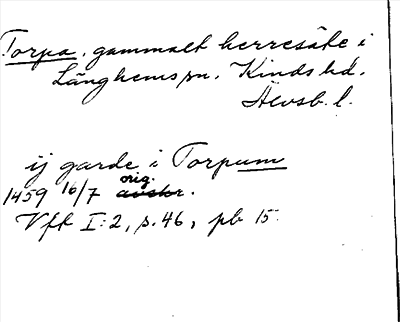 Torpa, gammalt herresäte i
Länghems sn. Kinds hd.
Älvsb. l.
ij garde i Torpum
orig.
1459 16/7 avskr.
Vft I:2, s. 46, pb 15.